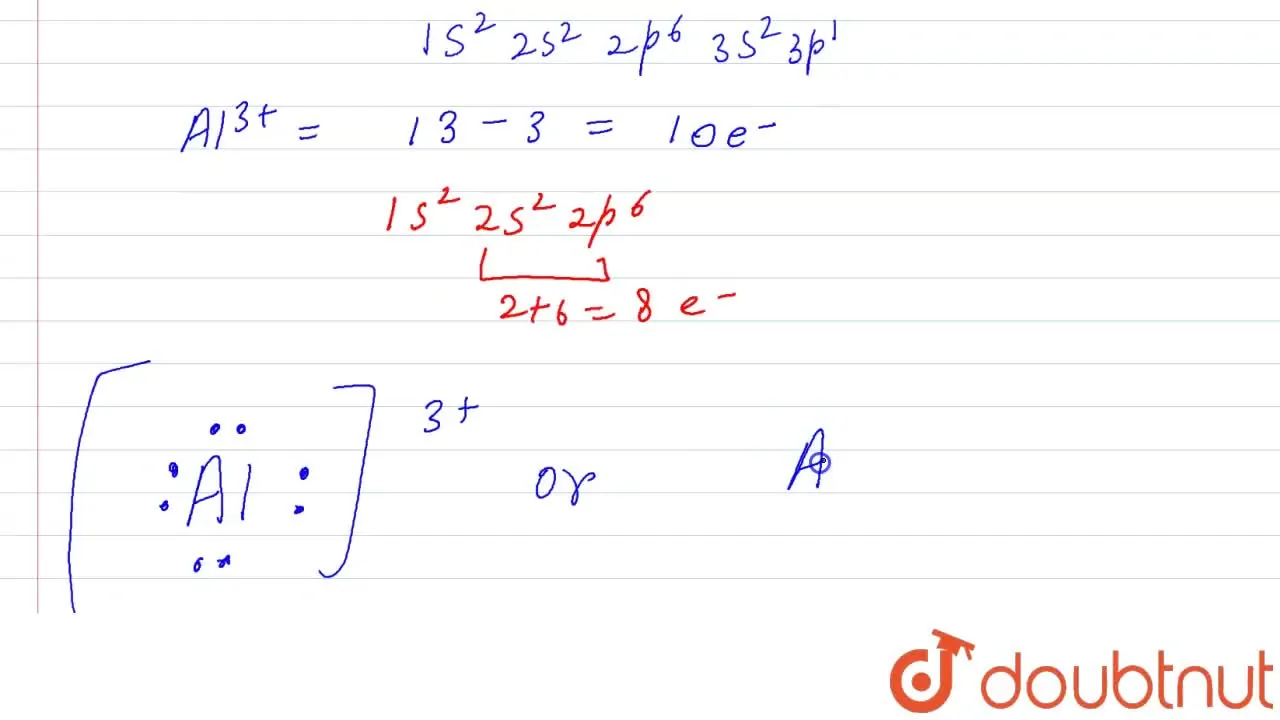 1s² 2s² 2p⁶ 3s² 3p¹
Al³⁺ = 13 - 3 = 10e⁻
1s² 2s² 2p⁶
2+6 = 8 e⁻
[Al]³⁺ or A
doubtnut